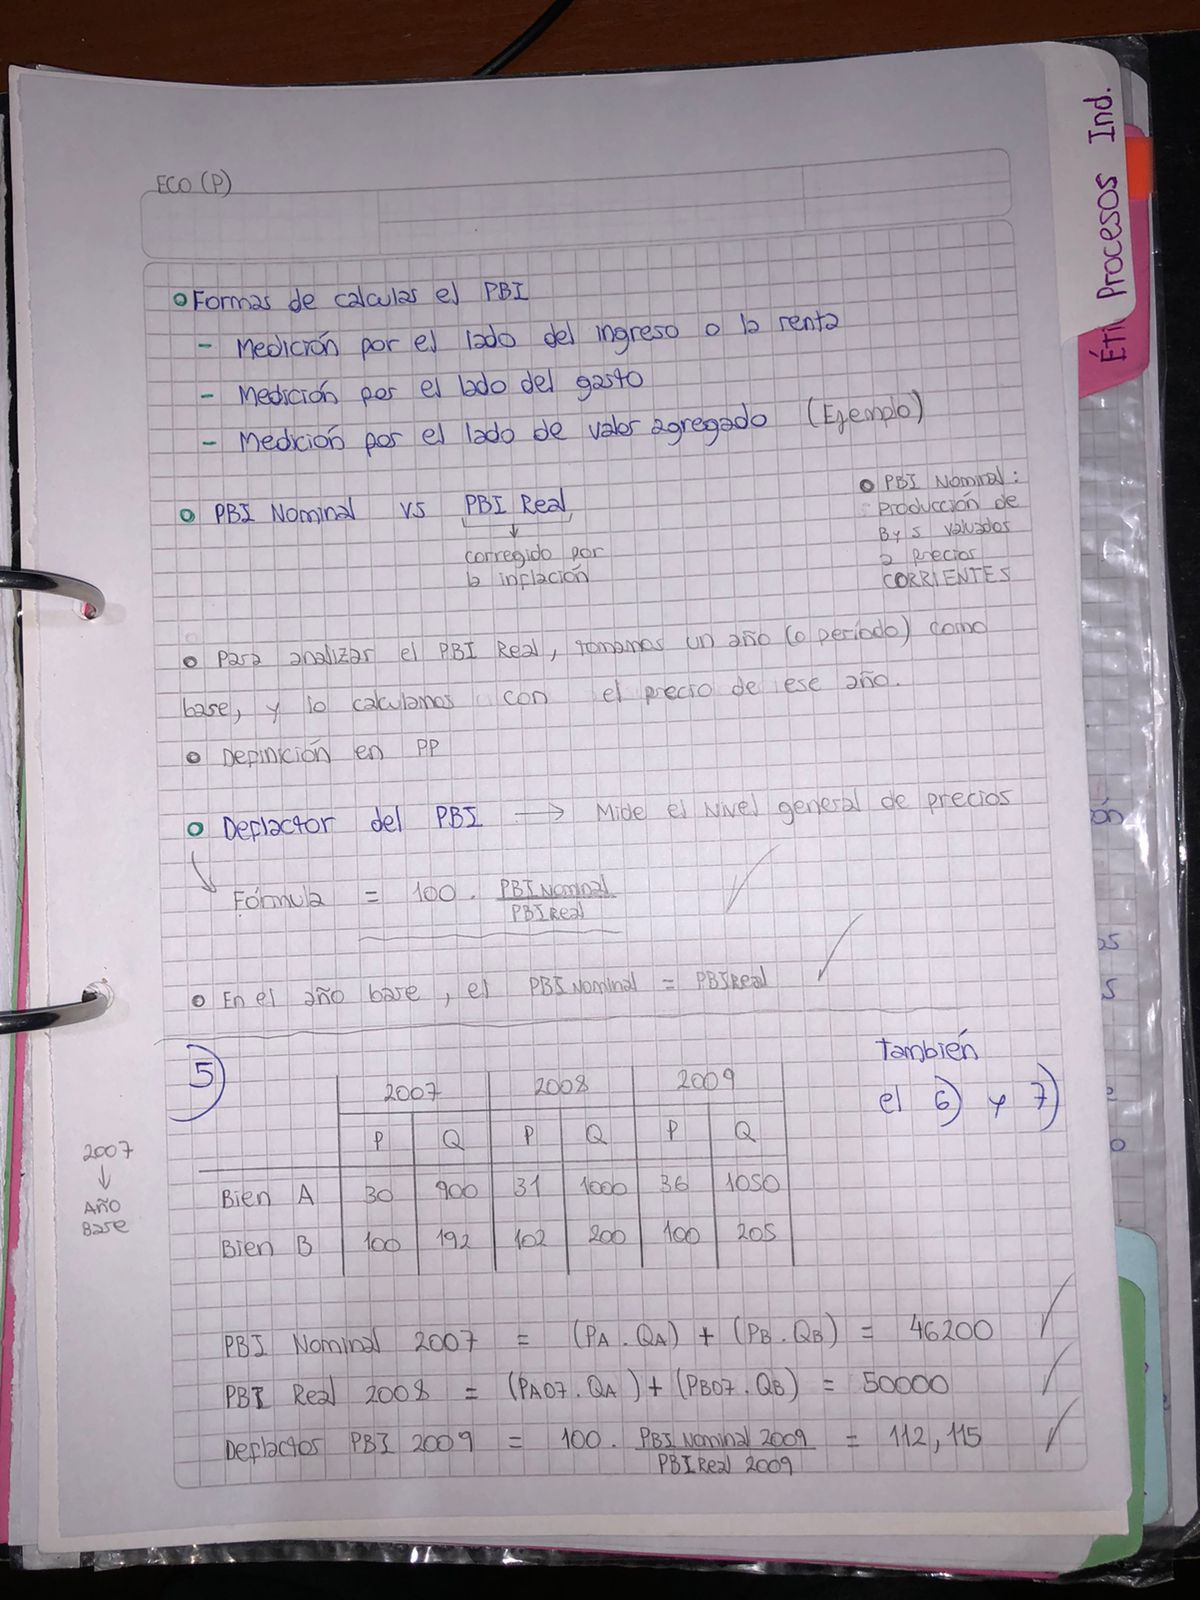 Procesos Ind.
Éti
ECO (P)
Formas de calcular el PBI
- Medición por el lado del ingreso o la renta
- Medición por el lado del gasto
- Medición por el lado de valor agregado (Ejemplo)
PBI Nominal vs PBI Real
corregido por
la inflación
PBI Nominal:
Producción de
B y S valuados
a precios
CORRIENTES
Para analizar el PBI Real, tomamos un año (o período) como
base, y lo calculamos con el precio de ese año.
Definición en PP
Deflactor del PBI → Mide el Nivel general de precios
Fórmula = 100 . PBI Nominal / PBI Real
En el año base, el PBI Nominal = PBI Real
5)
también
el 6) y 7)
2007 2008 2009
P Q P Q P Q
Bien A 30 900 31 1000 36 1050
Bien B 100 192 102 200 100 205
2007
↓
Año
Base
PBI Nominal 2007 = (PA . QA) + (PB . QB) = 46200
PBI Real 2008 = (PA07 . QA) + (PB07 . QB) = 50000
Deflactor PBI 2009 = 100 . PBI Nominal 2009 / PBI Real 2009 = 112,115